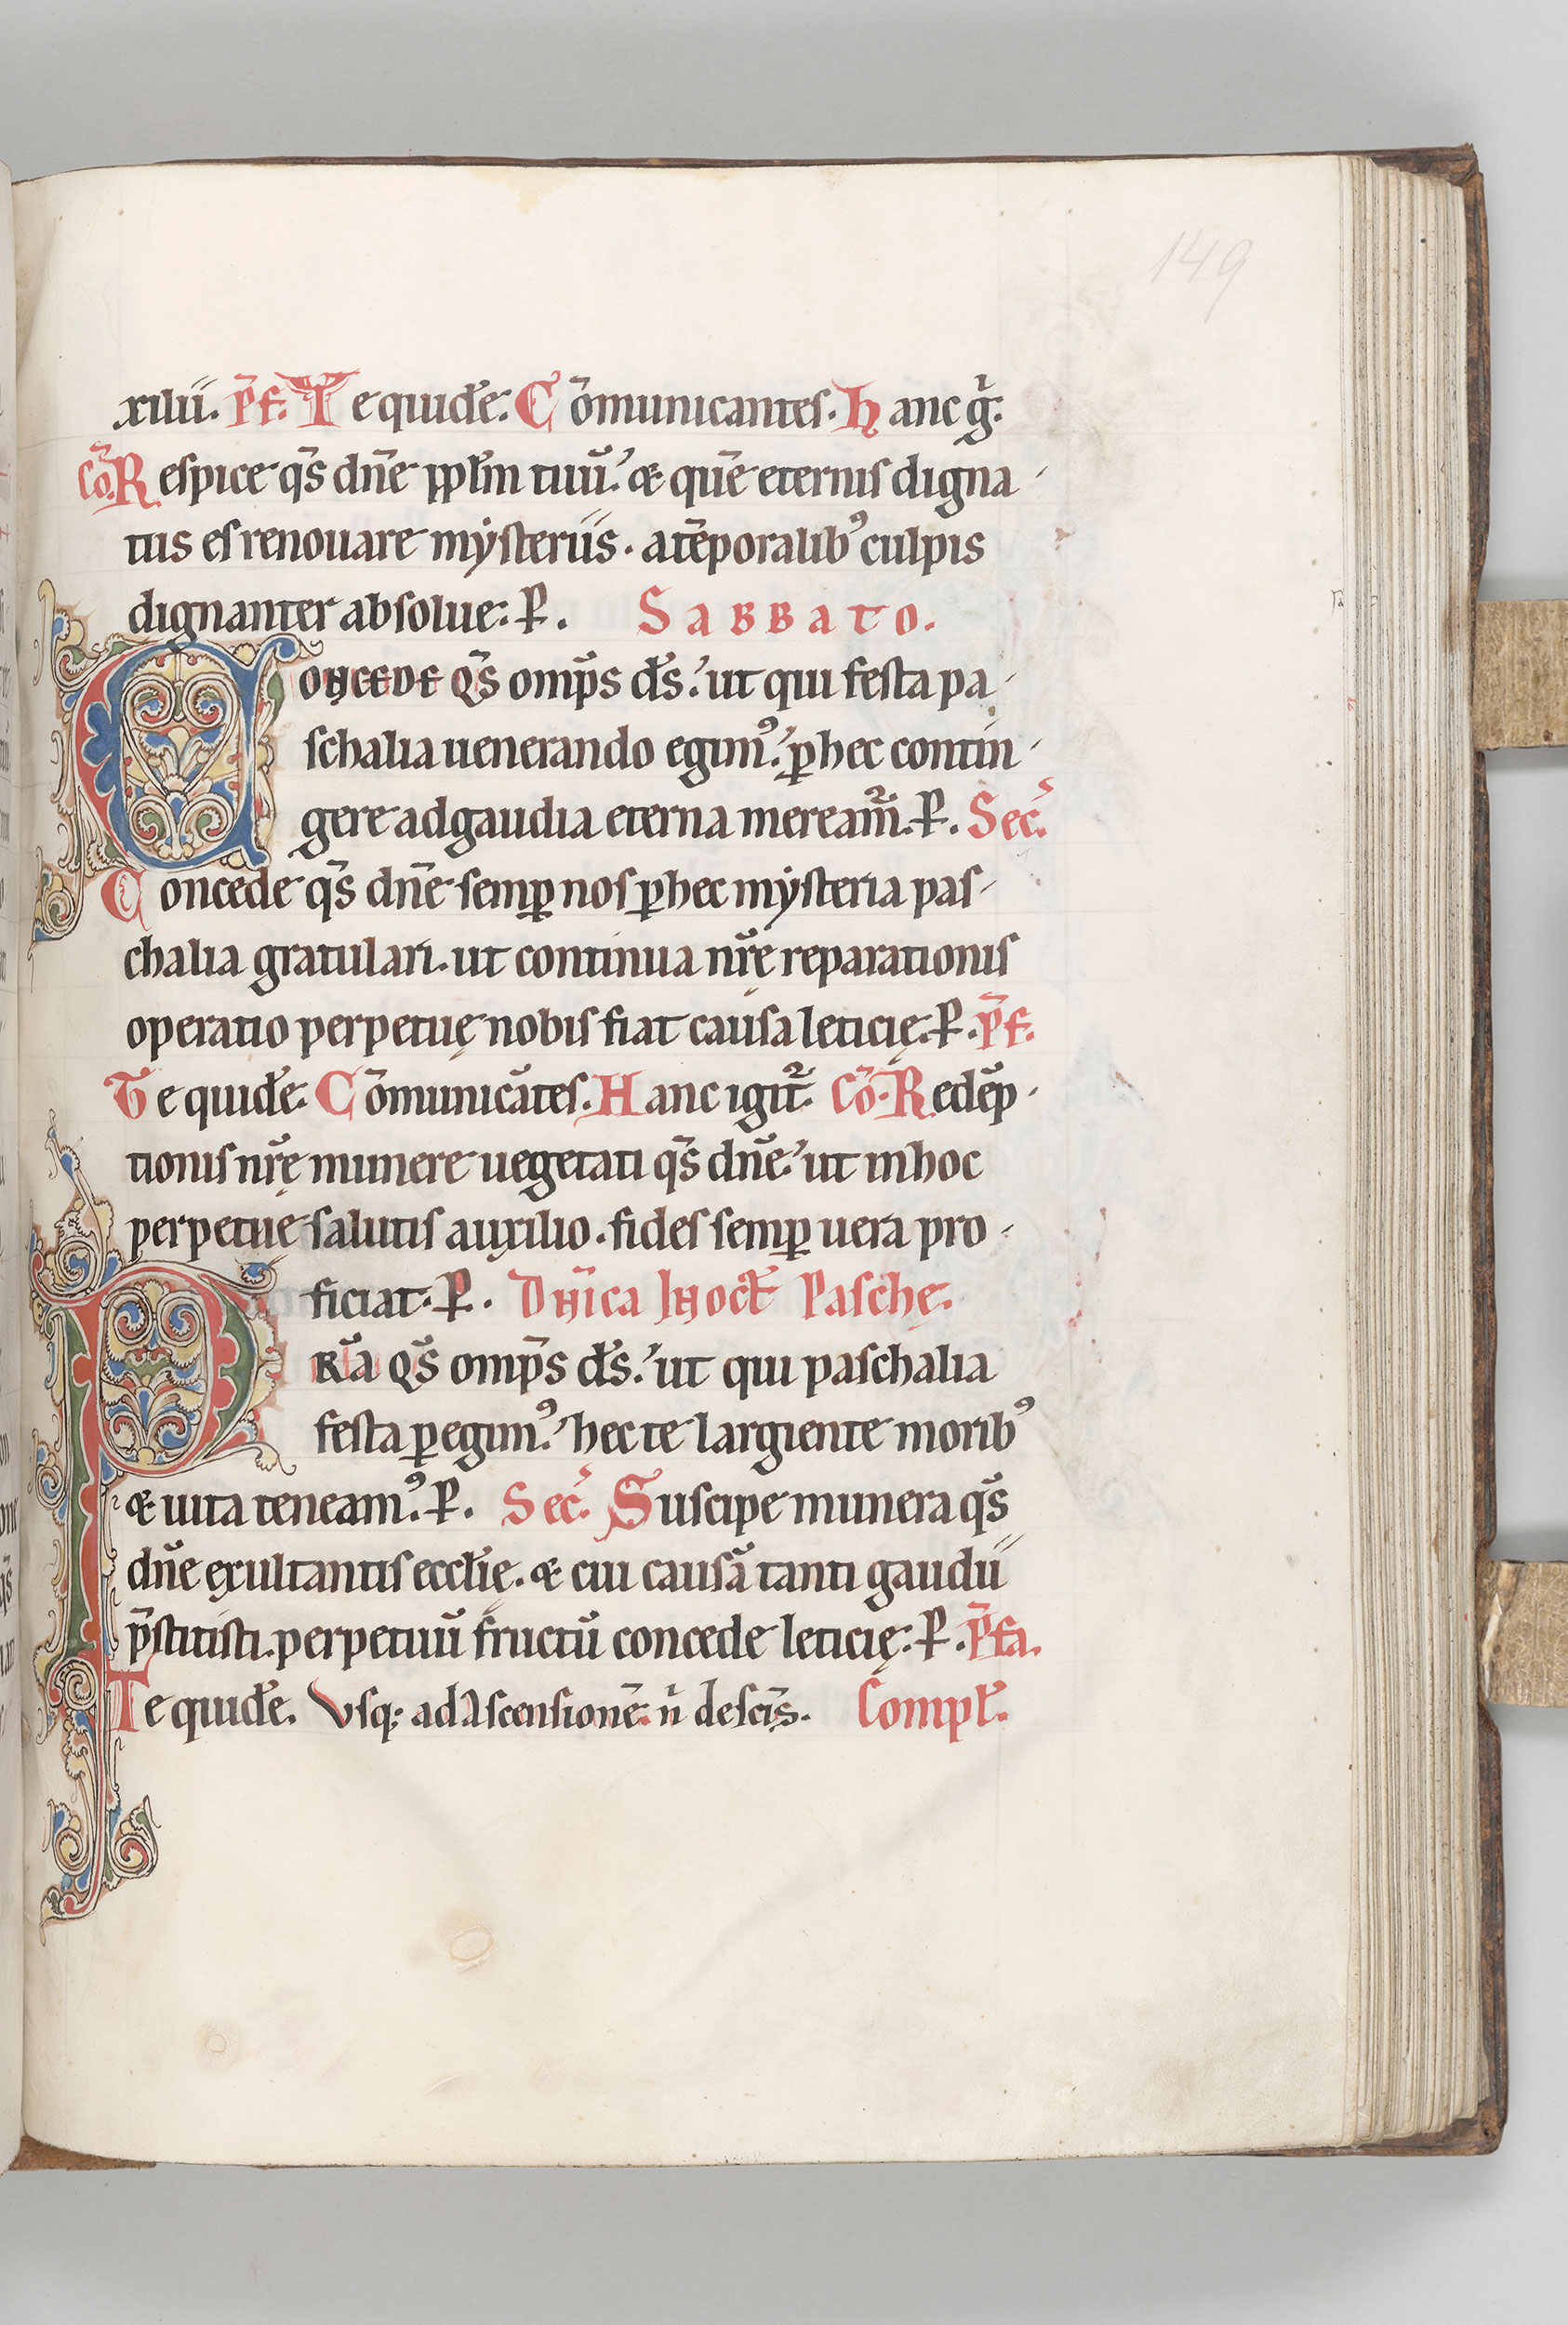 149
xiliı. p̄f. Te quidē. Cōmunicantes. Hanc g̑.
Cō. Respice qs̄ dn̄e pplm̄ tuū. & quē eternis digna-
tus es renouare mysteriis. a tēporalib᾽ culpis
dignanter absolue. P. SABBATO.
CONCEDE QS̄ omp̄s ds̄. ut qui festa pa-
schalia uenerando egim᾽. ꝑ hec contin-
gere ad gaudia eterna meream̄. P. Sec̄.
Concede qs̄ dn̄e semꝑ nos ꝑ hec mysteria pas-
chalia gratulari. ut continua nr̄ę reparationis
operatio perpetuę nobis fiat causa leticię. P. p̄f.
Te quidē. Cōmunicātes. Hanc igit᷑. Cō. Redēp-
tionis nr̄ę munere uegetati qs̄ dn̄e. ut in hoc
perpetuę salutis auxilio. fides semꝑ uera pro-
ficiat. P. Dn̄ica In oct̄ Paschę.
PRĀ QS̄ omp̄s ds̄. ut qui paschalia
festa ꝑegim᾽. hec te largiente morib᾽
& uita teneam᾽. P. Sec̄. Suscipe munera qs̄
dn̄e exultantis eccłię. & cui causā tanti gaudii
p̄stitisti. perpetuū fructū concede leticię. P. p̄fa.
Te quidē. Vsq; ad Ascensionē. n̄ descīs. Compł.